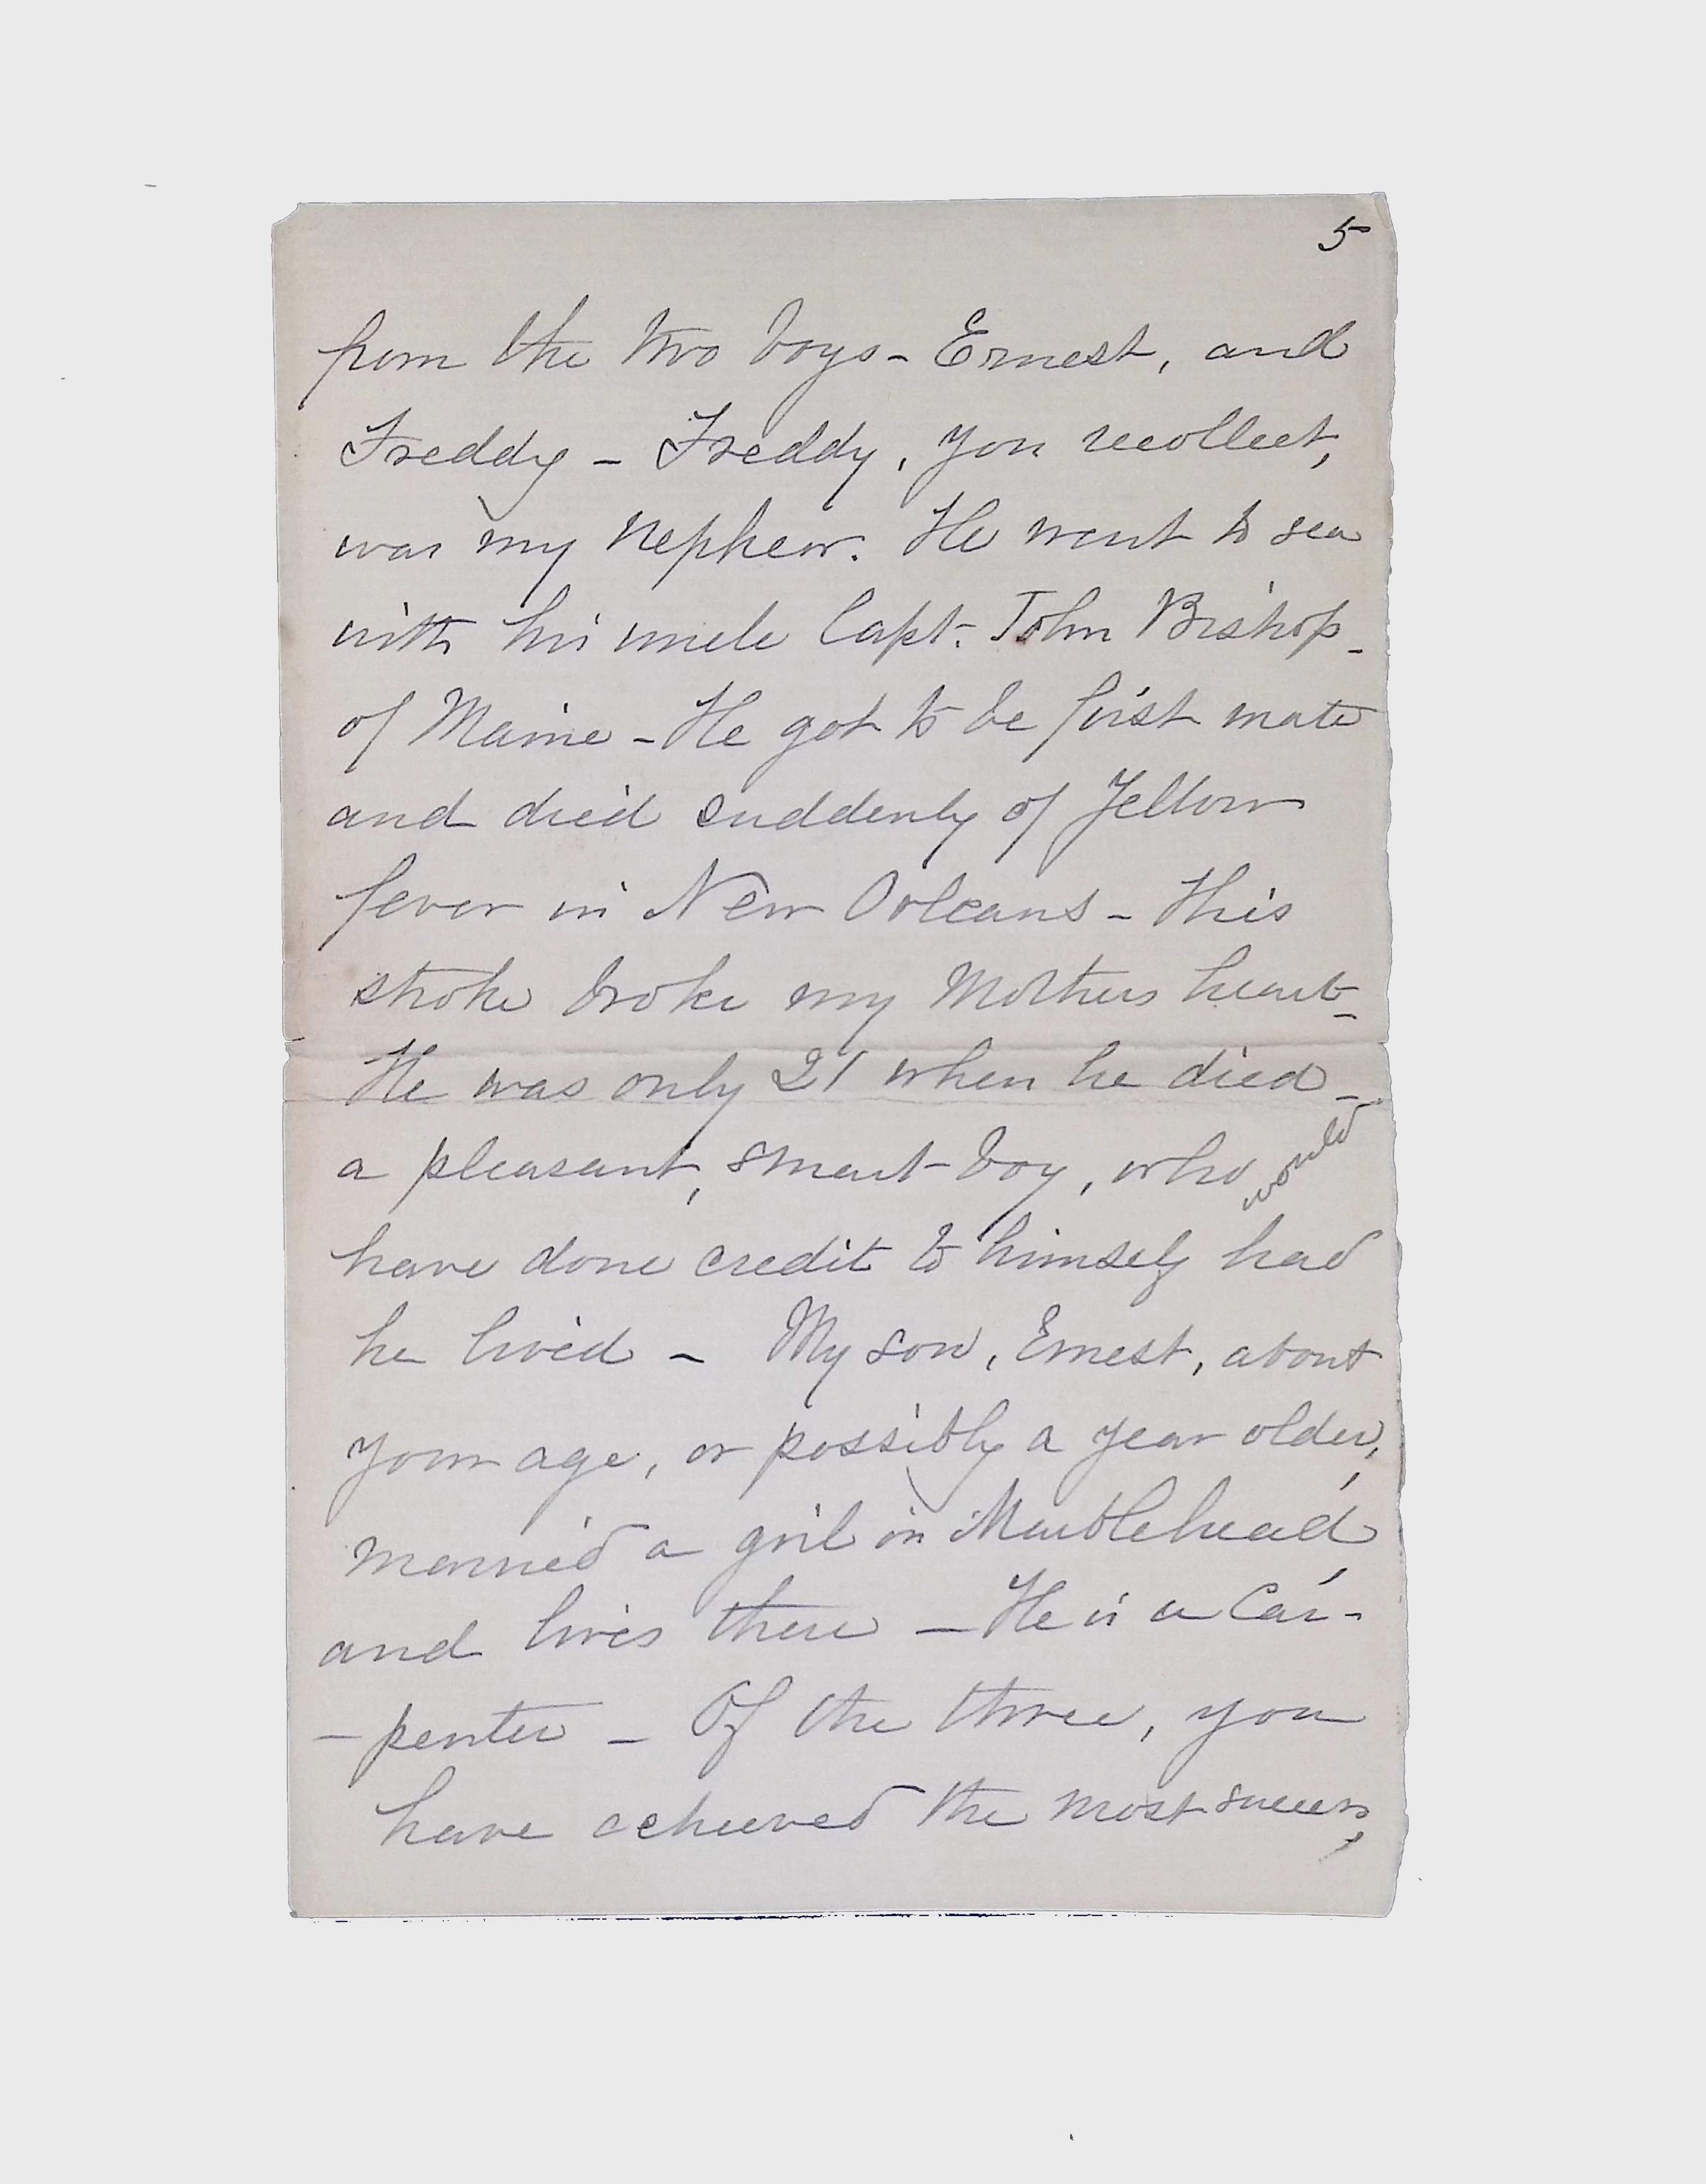 5
from the two boys - Ernest, and
Freddy - Freddy, you recollect,
was my nephew. He went to sea
with his uncle Capt. John Bishop -
of Maine - He got to be first mate
and died suddenly of Yellow
fever in New Orleans - This
stroke broke my Mothers heart -
He was only 21 when he died -
a pleasant, smart boy, who would
have done credit to himself had
he lived - My son, Ernest, about
your age, or possibly a year older,
married a girl in Marblehead,
and lives there - He is a Car-
-penter - Of the three, you
have achieved the most success,